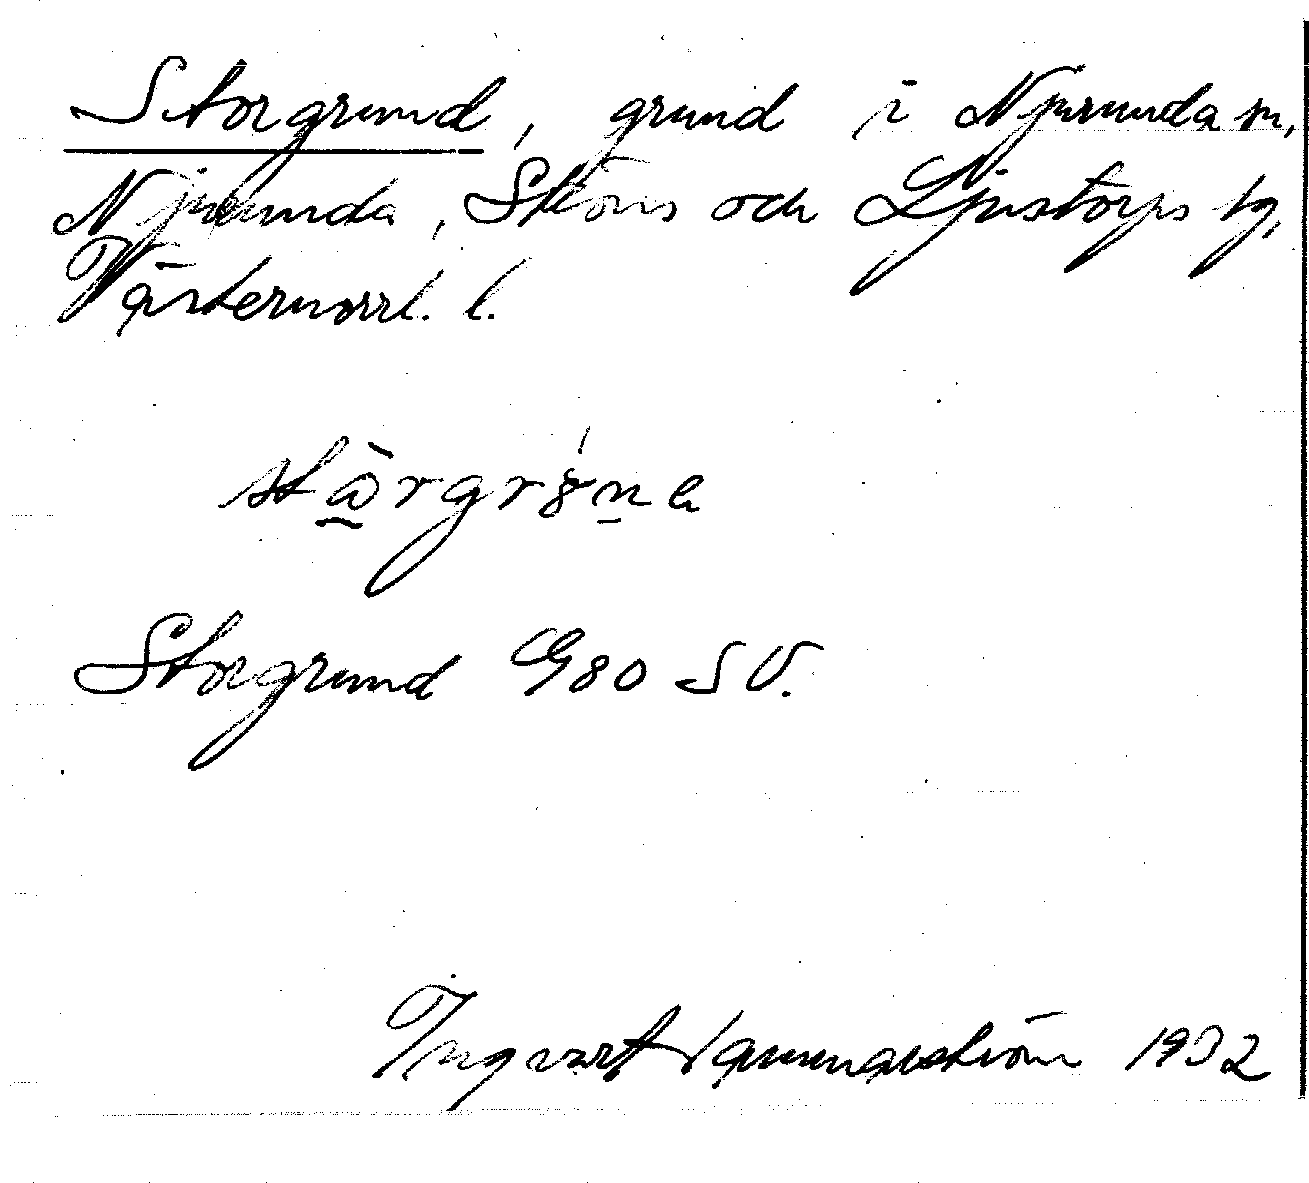 Storgrund, grund i Njurunda sn,
Njurunda, Sköns och Ljustorps tg,
Västernorrl. l.
Storgrund G80 SV.
Ingvart Hammarström 1932